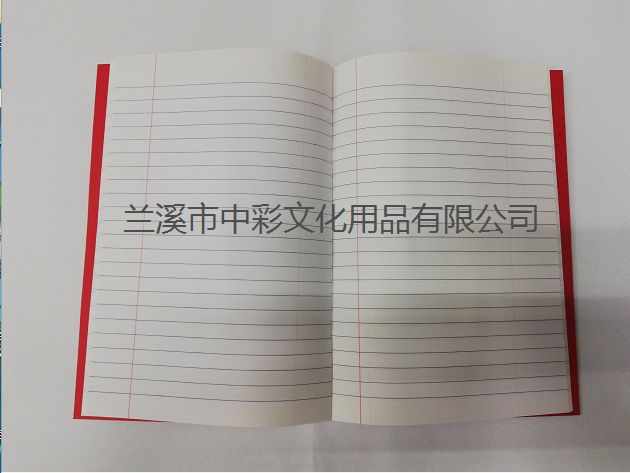 兰溪市中彩文化用品有限公司